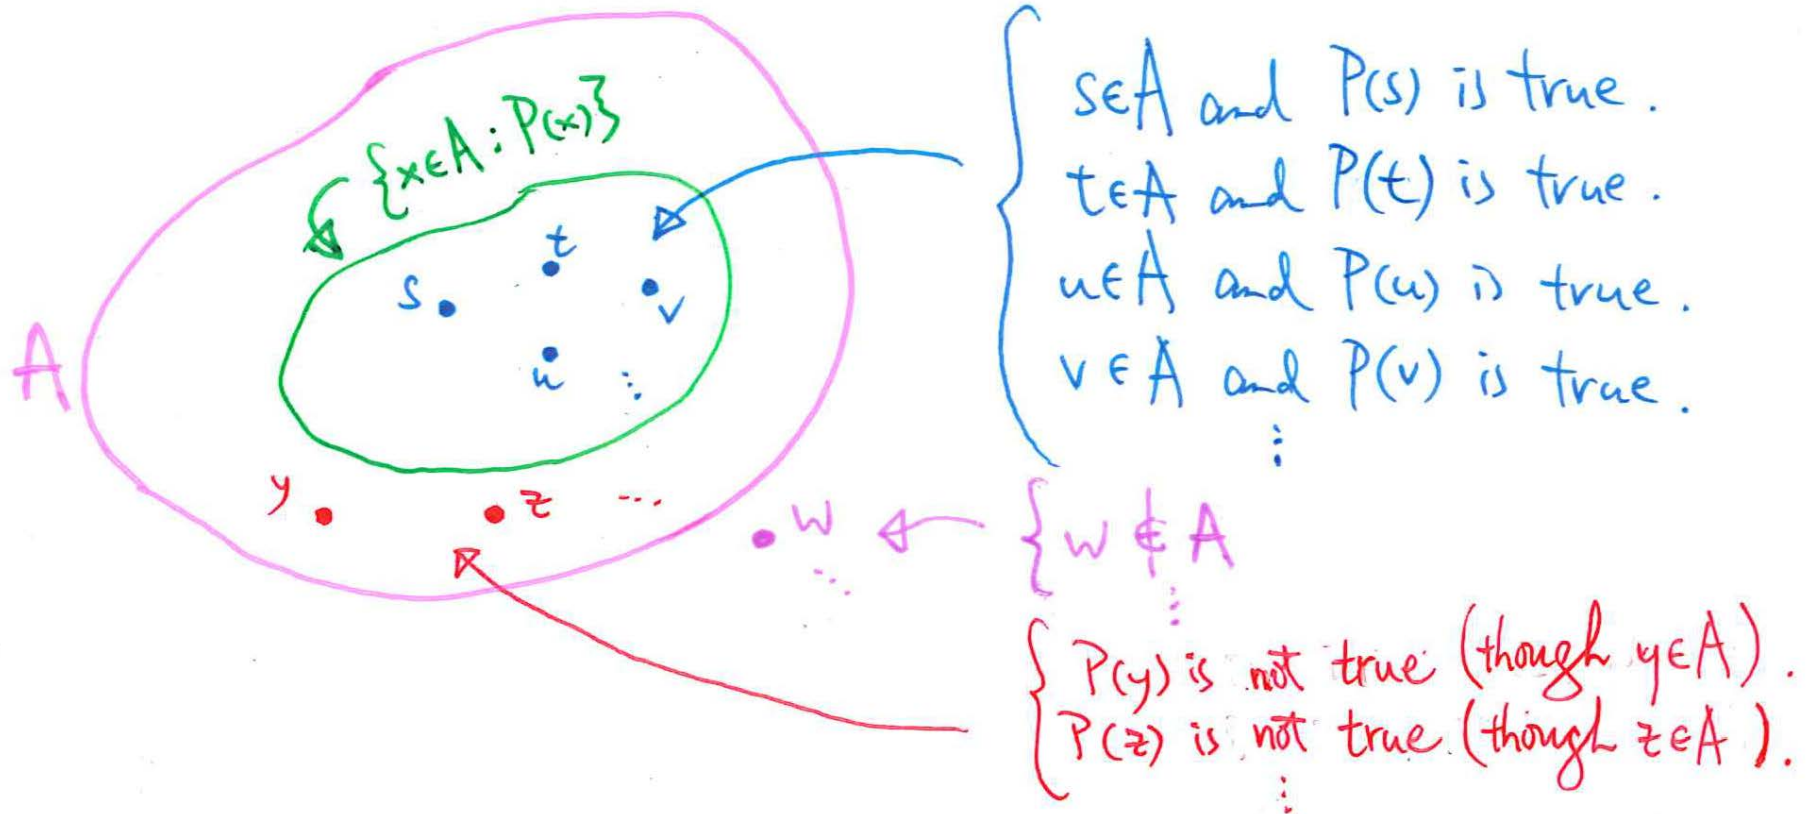 {x∈A : P(x)}
A
s
t
v
u
⋮
y
z
...
w
...
s∈A and P(s) is true.
t∈A and P(t) is true.
u∈A and P(u) is true.
v∈A and P(v) is true.
⋮
{ w ∉ A
⋮
P(y) is not true (though y∈A).
P(z) is not true (though z∈A).
⋮